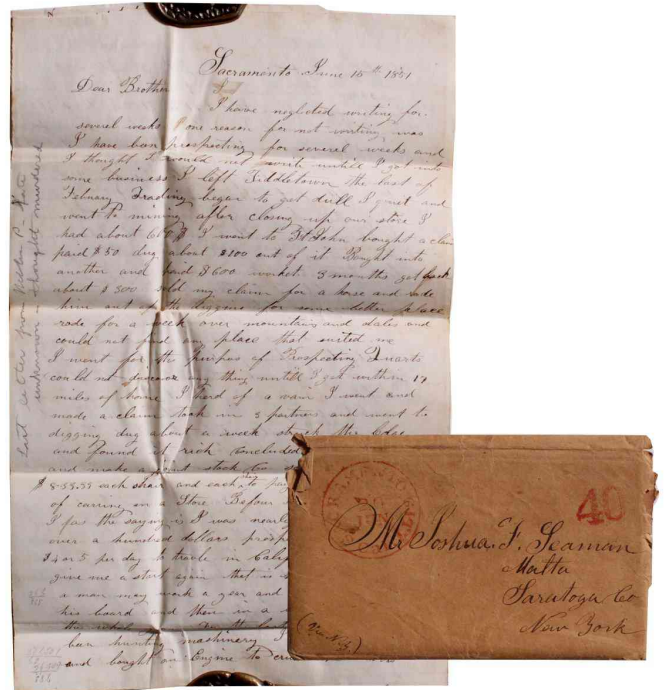 Sacramento June 15th 1851
Dear Brother
I have neglected writing for
several weeks one reason for not writing was
I have ben prospecting for several weeks and
I thought I would not write untill I got into
some business I left Fiddletown the last of
Febuary Trading began to get dull I quit and
went to mining after closing up our store I
had about I went to St John bought a claim
paid $50 dug about $100 out of it Bought into
another and paid $600 workt 3 months got back
about $300 sold my claim for a horse and rode
him out of the diggins for some better place
rode for a week over mountains and dales and
could not find any place that suited me
I went for the purpus of Prospecting Quarts
could not discover any thing untill I got within 17
miles of home I heard of a vain I went and
made a claim took in 3 partners and went to
digging dug about a week struck the Ledge
and found it rich concluded
and make a joint stock
each shair and each to pay
of carring on a Store Befour
I fas the saying is I was nearly
over a hundred dollars
$4 or 5 per day to travle in
give me a start again that is
a man may work a year and
his board and then in a
the whole
ben hunting machinery I
and bought an Engine to
Last letter from P.
unknown - thought murdered
40
Mr Joshua F. Seaman
Malta
Saratoga Co
New York